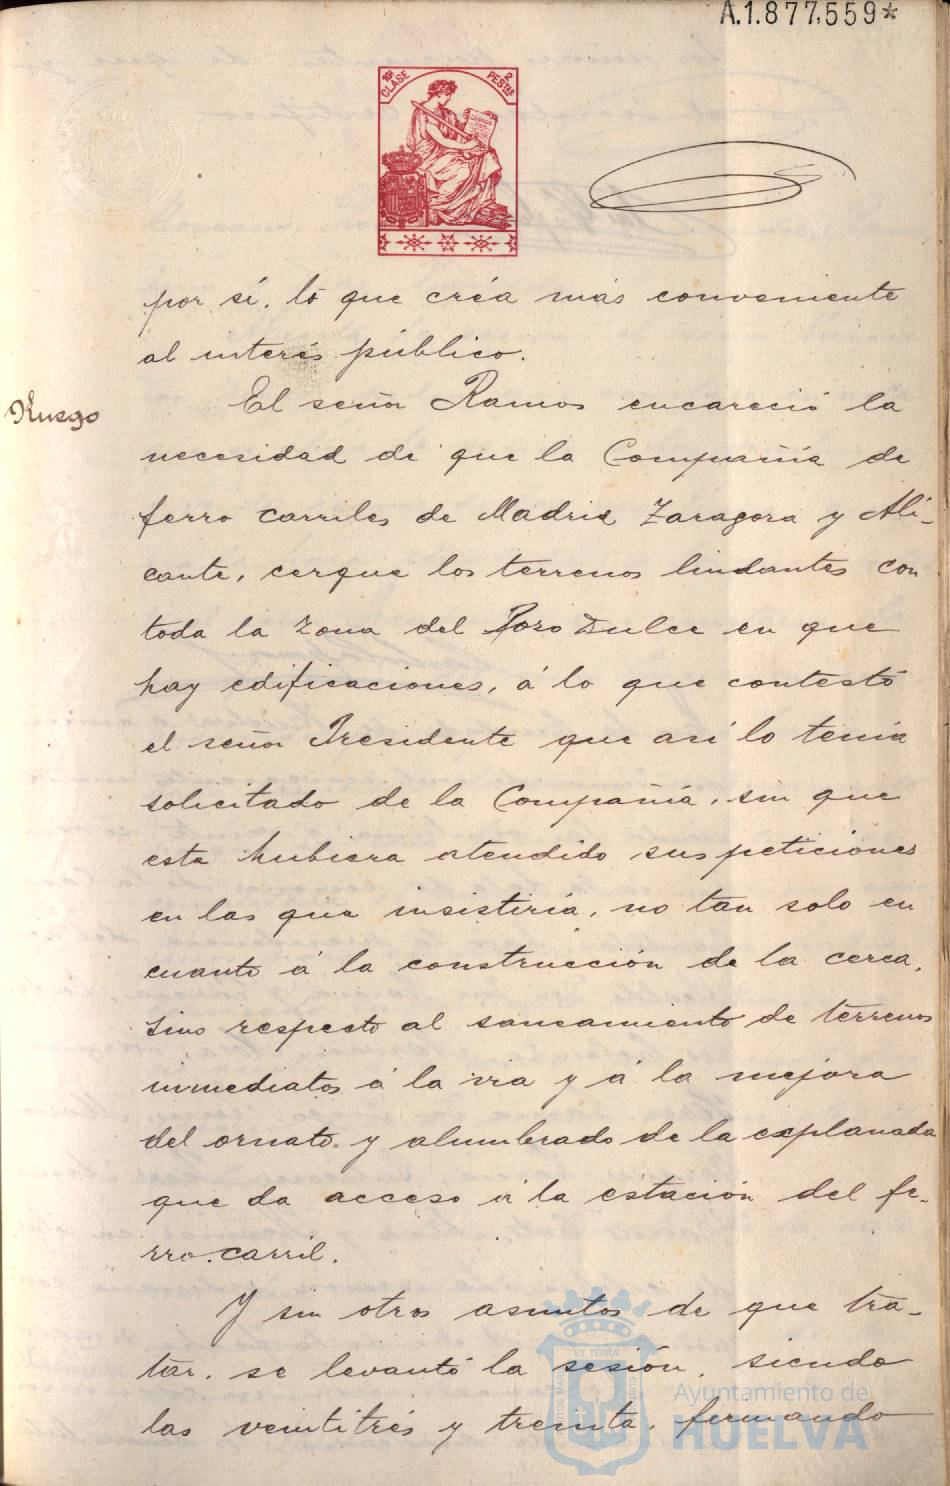 A.1.877,559*
10ª CLASE
2 PESTAS
por sí, lo que créa más conveniente
al interés público.
Ruego
El señor Ramos encareció la
necesidad de que la Compañía de
ferro carriles de Madrid Zaragoza y Ali-
cante, cerque los terrenos lindantes con
toda la zona del Pozo Dulce en que
hay edificaciones, á lo que contestó
el señor Presidente que así lo tenía
solicitado de la Compañía, sin que
esta hubiera atendido sus peticiones
en las que insistiría, no tan solo en
cuanto á la construcción de la cerca,
sino respecto al saneamiento de terrenos
inmediatos á la via y á la mejora
del ornato y alumbrado de la explanada
que da acceso á la estación del fe-
rro-carril.
Y sin otros asuntos de que tra-
tar, se levantó la sesión, siendo
las veintitrés y treinta, firmando
Ayuntamiento de
HUELVA